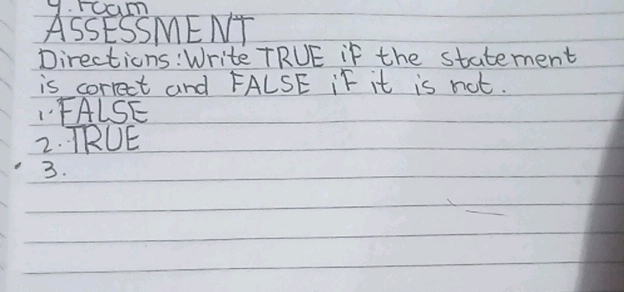 9. Foam
ASSESSMENT
Directions: Write TRUE if the statement
is correct and FALSE if it is not.
1. FALSE
2. TRUE
3.